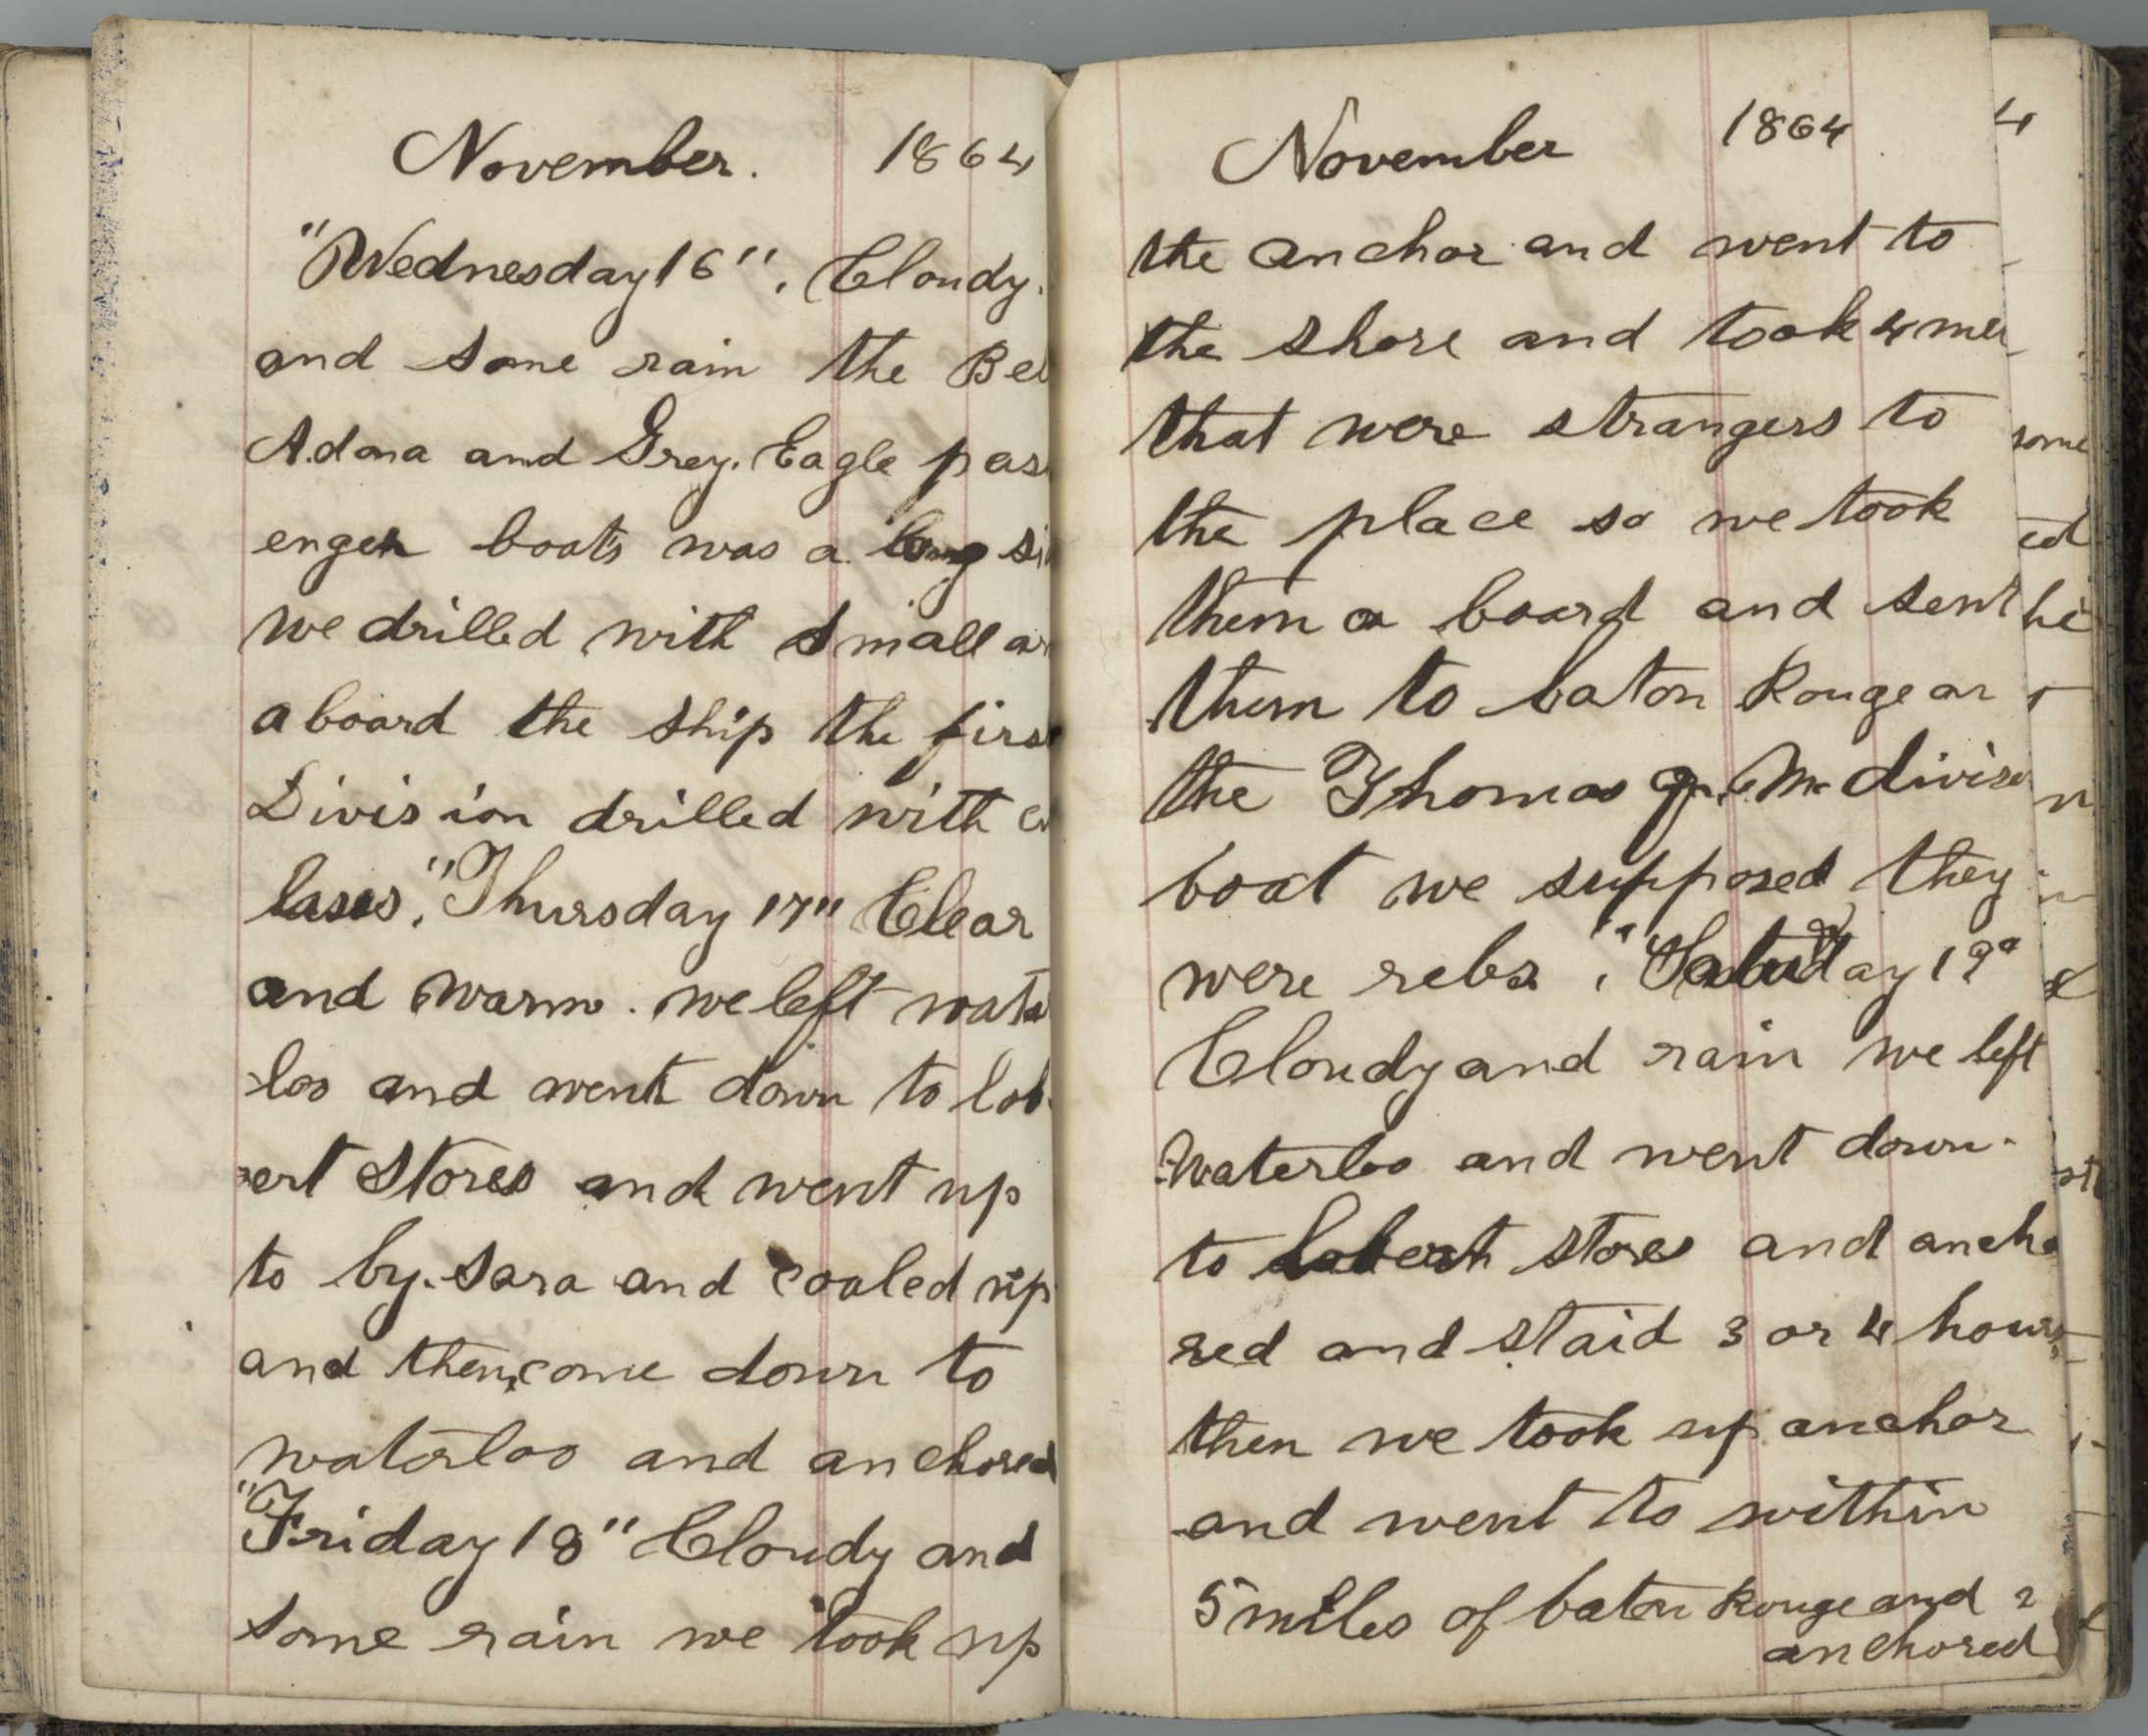 November. 1864
"Wednesday 16". Cloudy.
and some rain the Bel
Adona and Grey. Eagle pas
enger boats was a long si
we drilled with small ar
aboard the ship the first
Division drilled with cu
lases. "Thursday 17" Clear
and warm. we left wate
loo and went down to lob
ert Stores and went up
to by. Sara and coaled up
and then come down to
waterloo and anchored
"Friday 18" Cloudy and
some rain we took up
November 1864
the anchor and went to
the shore and took 4 men
that were strangers to
the place so we took
them a board and sent
them to baton Rouge on
the Thomas
boat we supposed they
were rebs. "Saturday 19"
Cloudy and rain we left
Waterloo and went down
to Lobert stores and ancho
red and staid 3 or 4 hours
then we took up anchor
and went to within
5 miles of baton Rouge and
anchored